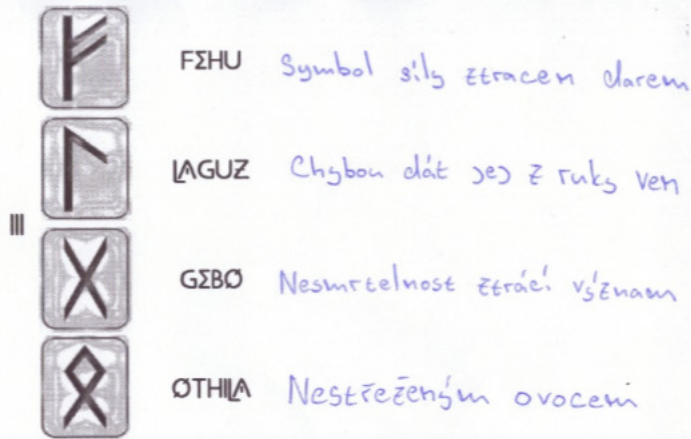 FΣHU Symbol síly ztracen darem
LAGUZ Chybou dát jej z ruky ven
III
GΣBØ Nesmrtelnost ztrácí význam
ØTHILA Nestřeženým ovocem